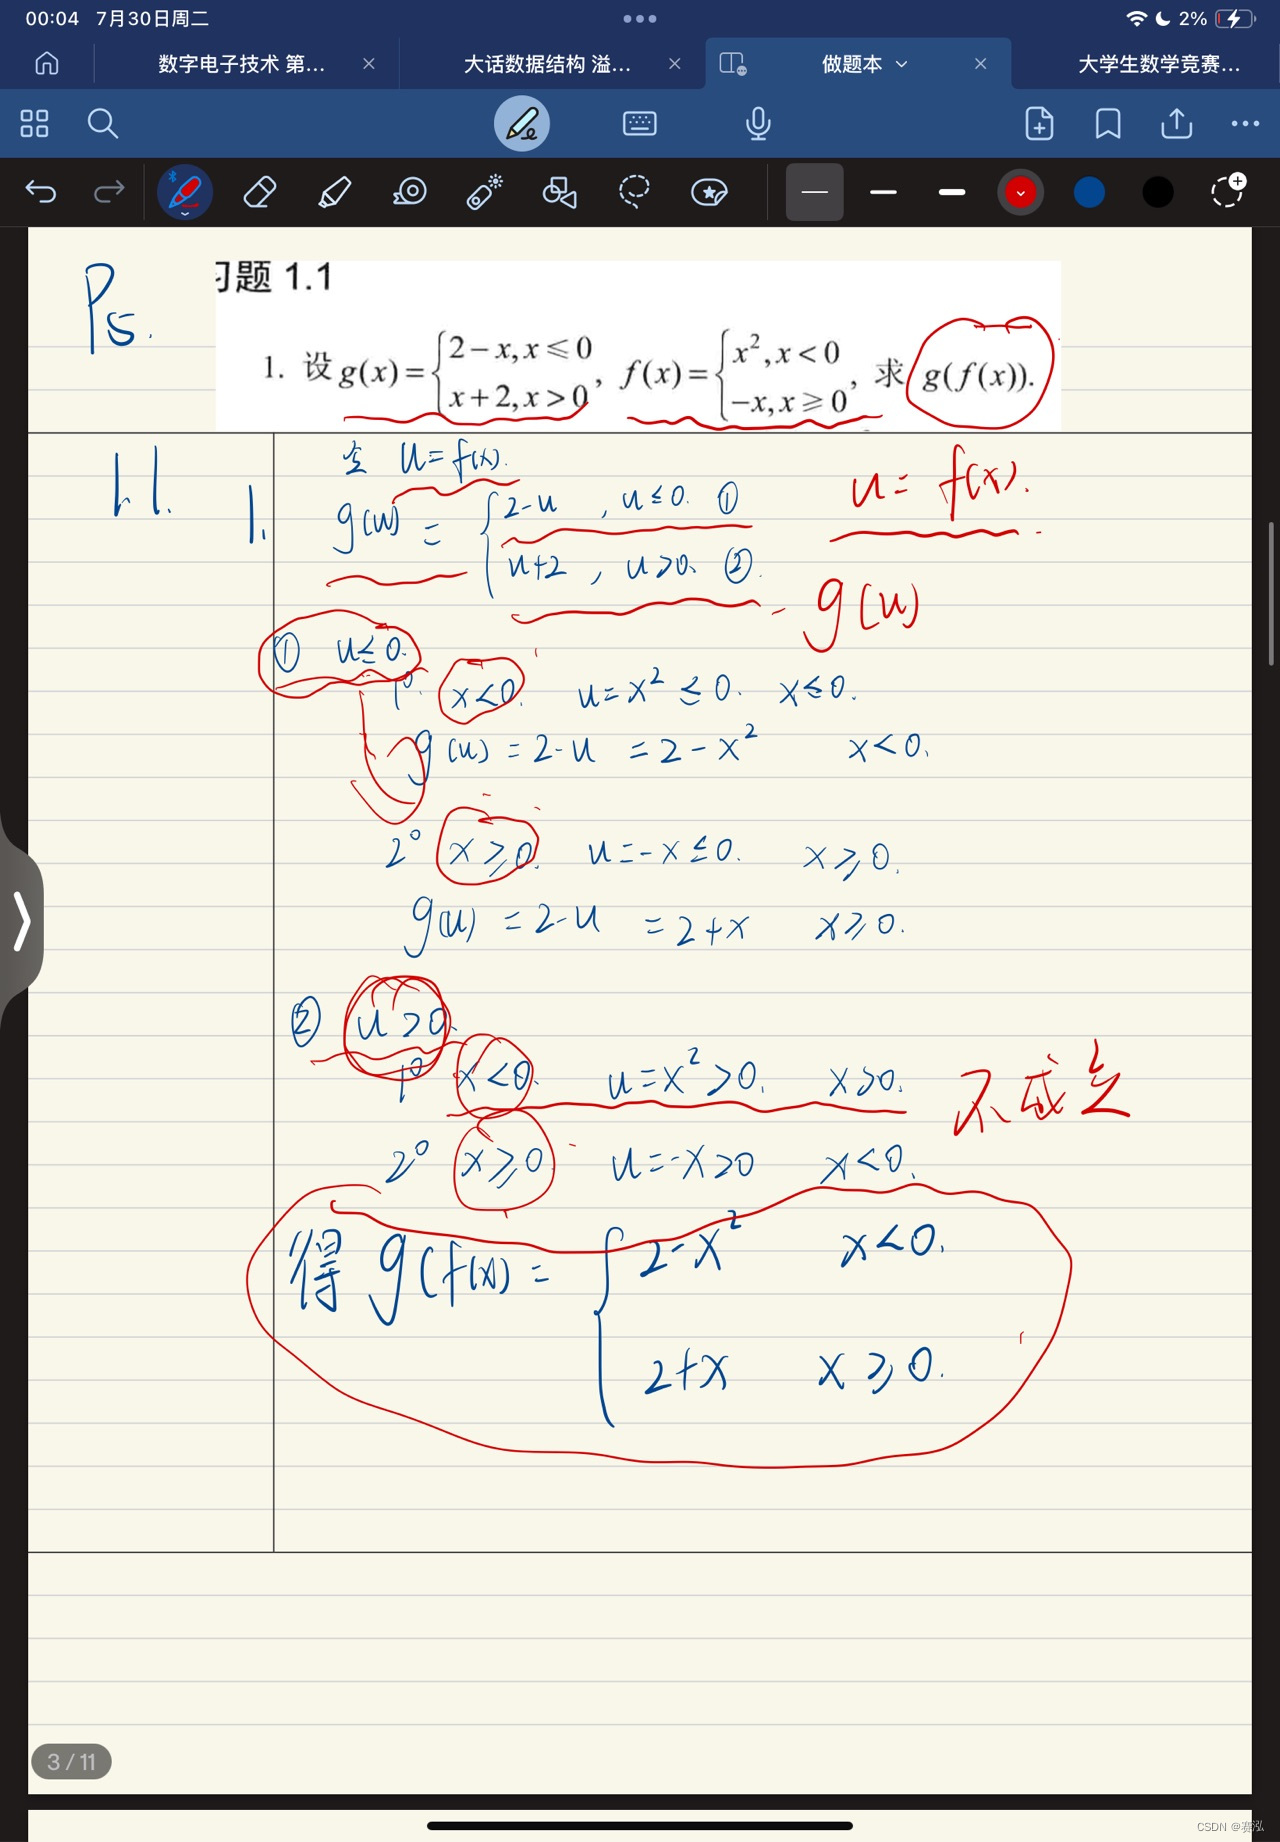 00:04 7月30日周二 2%
数字电子技术 第... 大话数据结构 溢... 做题本 大学生数学竞赛...
P5.
习题 1.1
1. 设 g(x)={2-x, x≤0 x+2, x>0, f(x)={x², x<0 -x, x≥0, 求 g(f(x)).
1.1.
1. 令 u=f(x).
u=f(x).
g(u) = {2-u , u≤0. ①
u+2 , u>0. ②
g(u)
① u≤0.
1° x<0. u=x²≤0. x≤0.
g(u)=2-u =2-x² x<0.
2° x≥0. u=-x≤0. x≥0.
g(u) =2-u =2+x x≥0.
② u>0.
1° x<0. u=x²>0. x>0. 不成立
2° x≥0 u=-x>0 x<0.
得 g(f(x)= {2-x² x<0.
2+x x≥0.
3/11
CSDN @赛泓